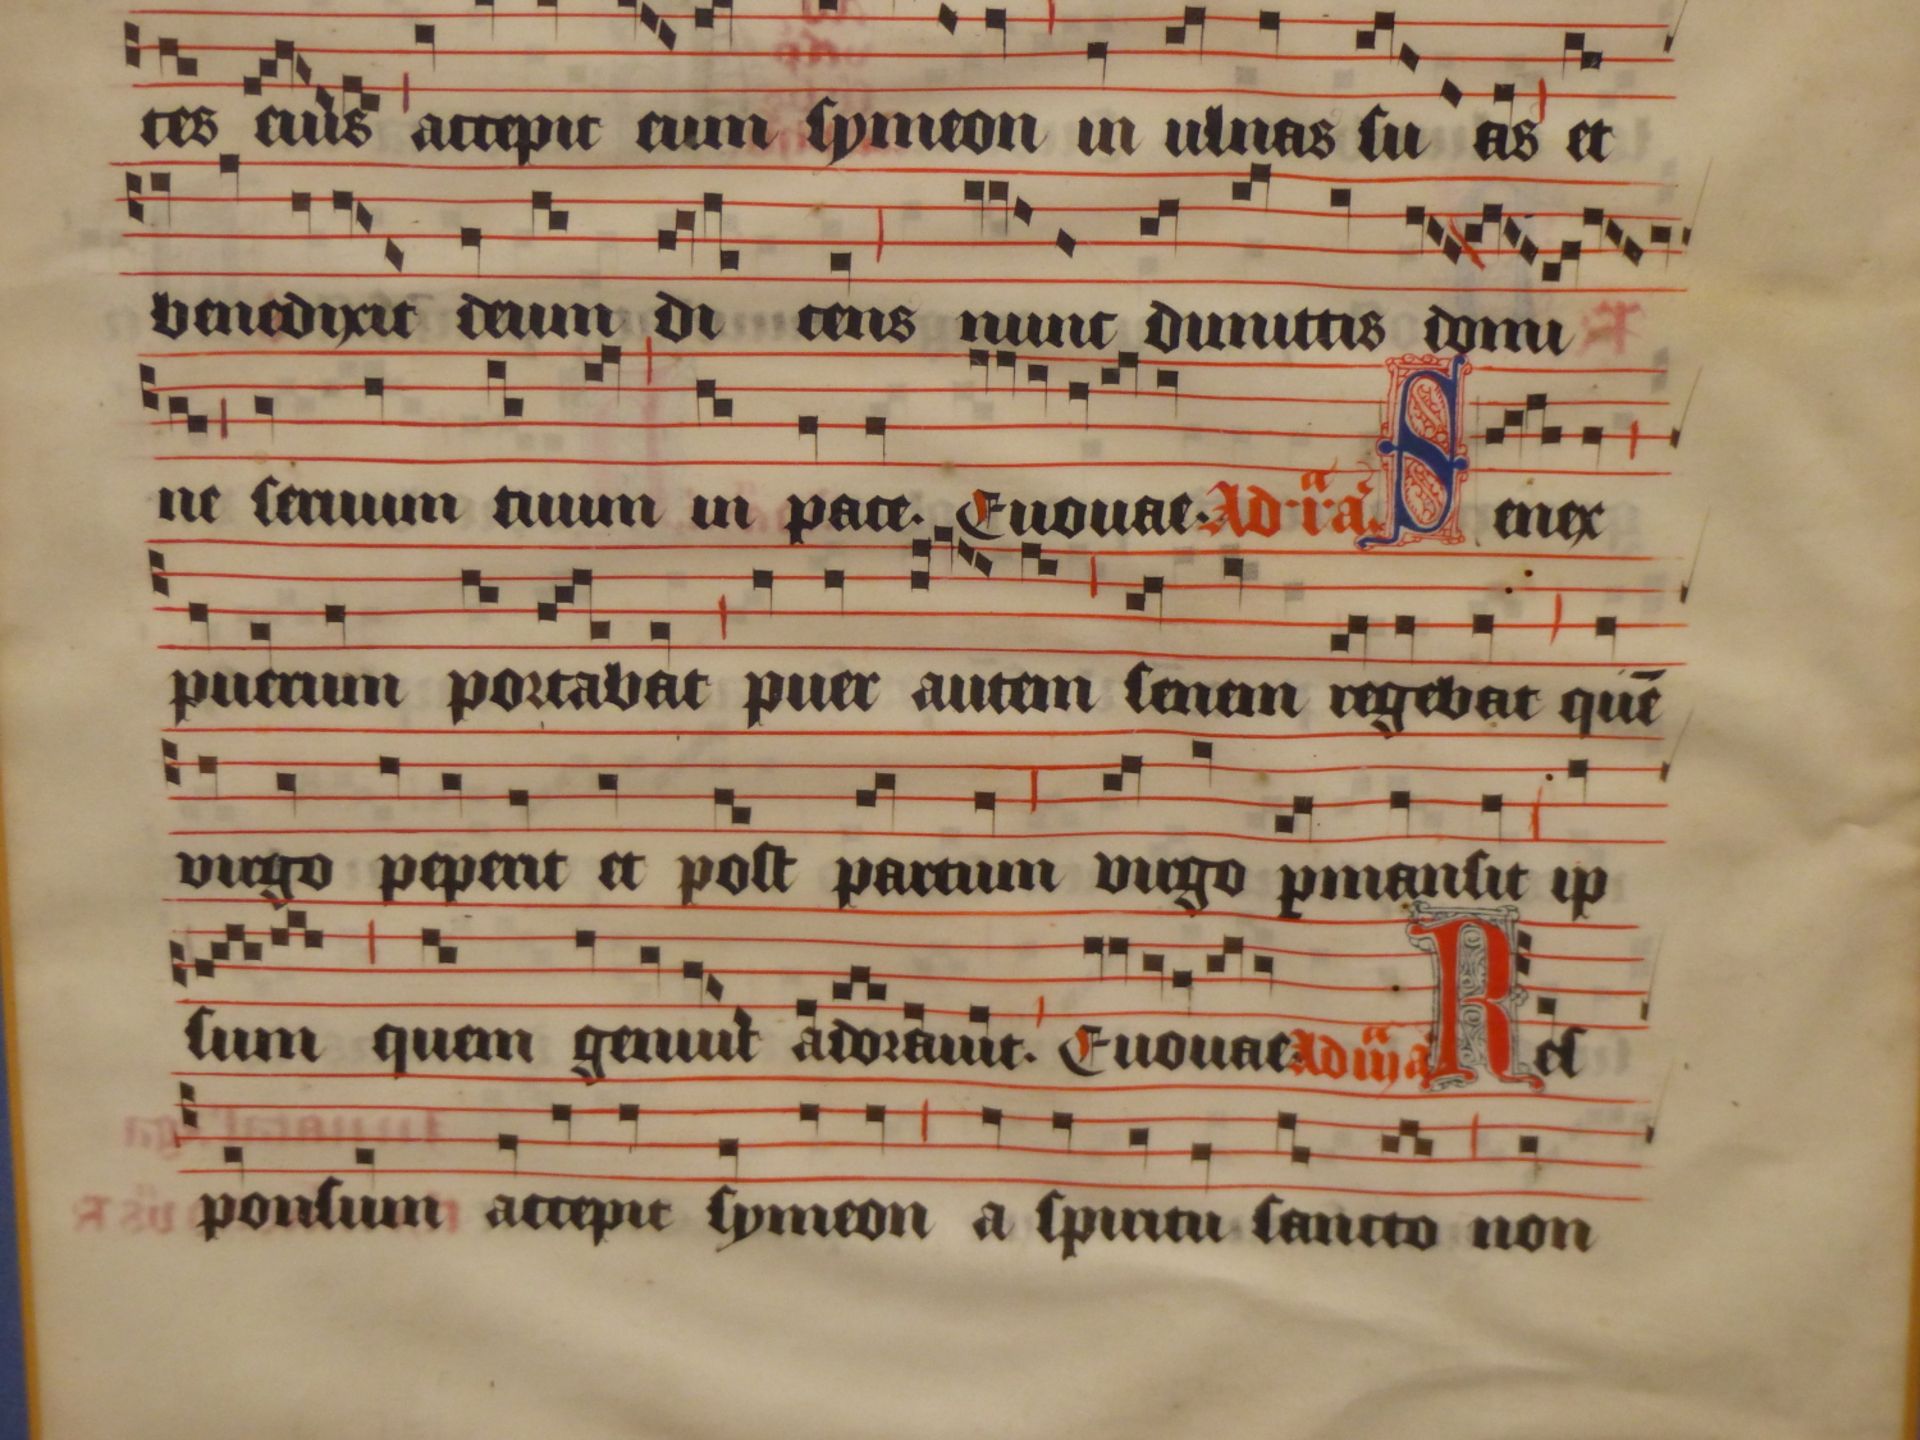 tes eius accepit eum symeon in ulnas su as et
benedixit deum di cens nunc dimittis domi
ne seruum tuum in pace. Euouae. Ad .i.a. Senex
puerum portabat puer autem senem regebat quē
virgo peperit et post partum virgo pmansit ip
sum quem genuit adorauit. Euouae Ad iij a Res
ponsum accepit symeon a spiritu sancto non